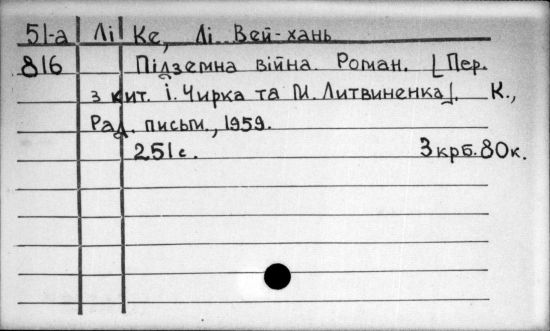 51-а Лі Ке, Лі Вей-хань
816 Підземна війна. Роман. [Пер.
з кит. І. Чирка та М. Литвиненка]. К.,
Рад. письм., 1959.
251с. 3крб.80к.